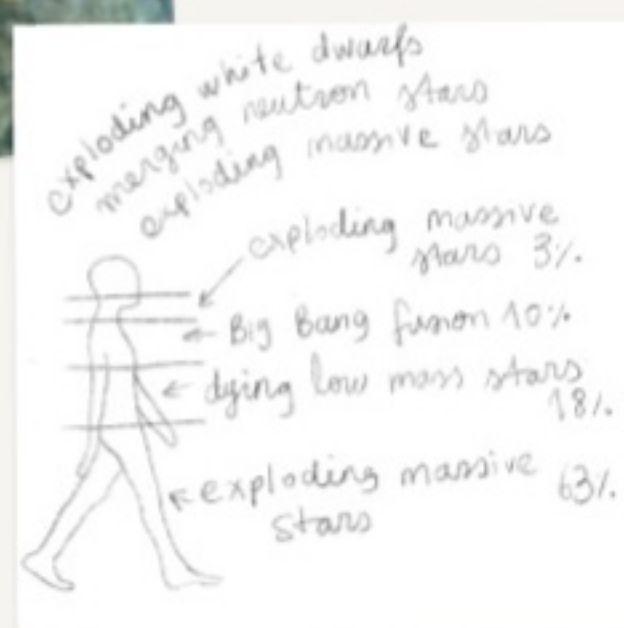 exploding white dwarfs
merging neutron stars
exploding massive stars
exploding massive
stars 3%.
Big Bang fusion 10%.
dying low mass stars
18%.
exploding massive 63%.
stars